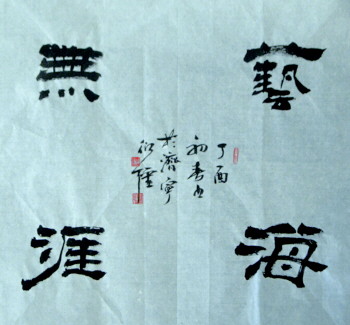 藝海
無涯
丁酉
初春書
於濟寧